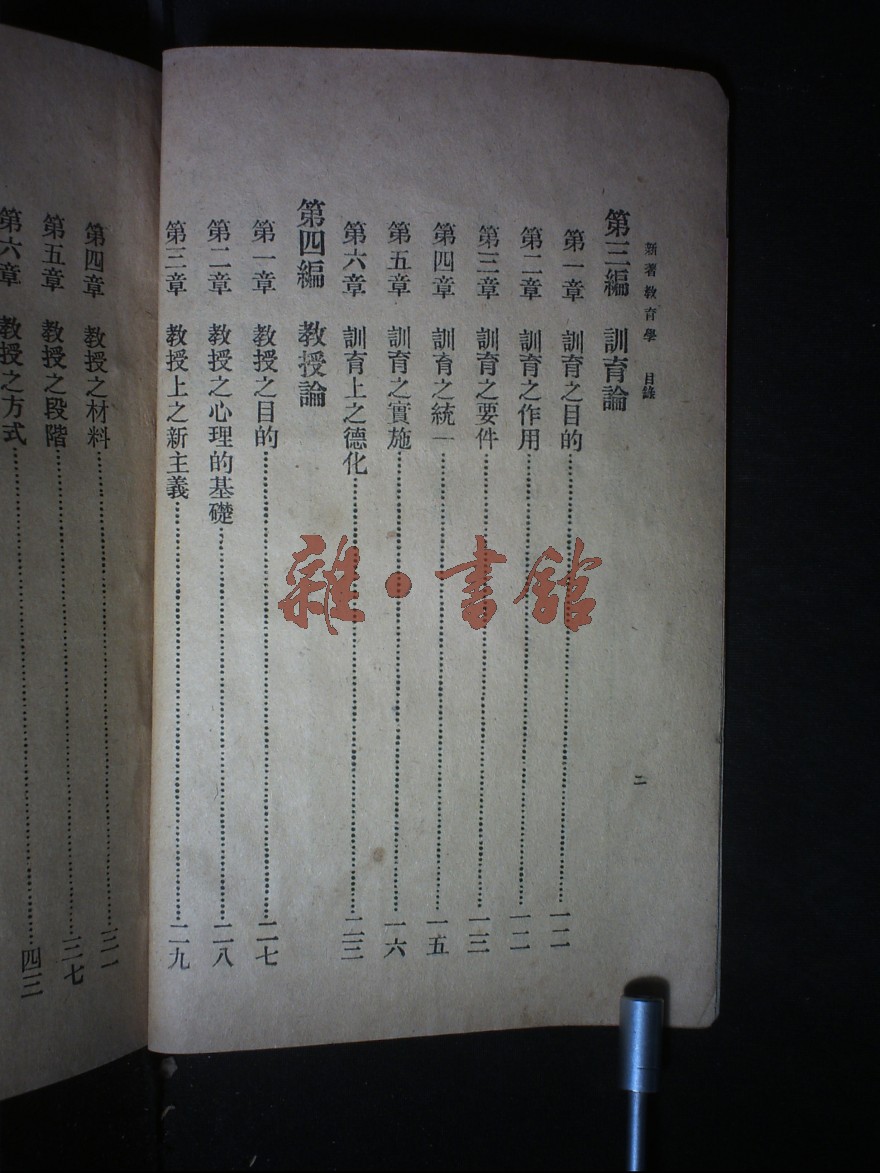 新著教育學 目錄 二
第三編 訓育論
第一章 訓育之目的……一二
第二章 訓育之作用……一二
第三章 訓育之要件……一三
第四章 訓育之統一……一五
第五章 訓育之實施……一六
第六章 訓育上之德化……二三
第四編 教授論
第一章 教授之目的……二七
第二章 教授之心理的基礎……二八
第三章 教授上之新主義……二九
第四章 教授之材料……三一
第五章 教授之段階……三七
第六章 教授之方式……四三
雜·書館